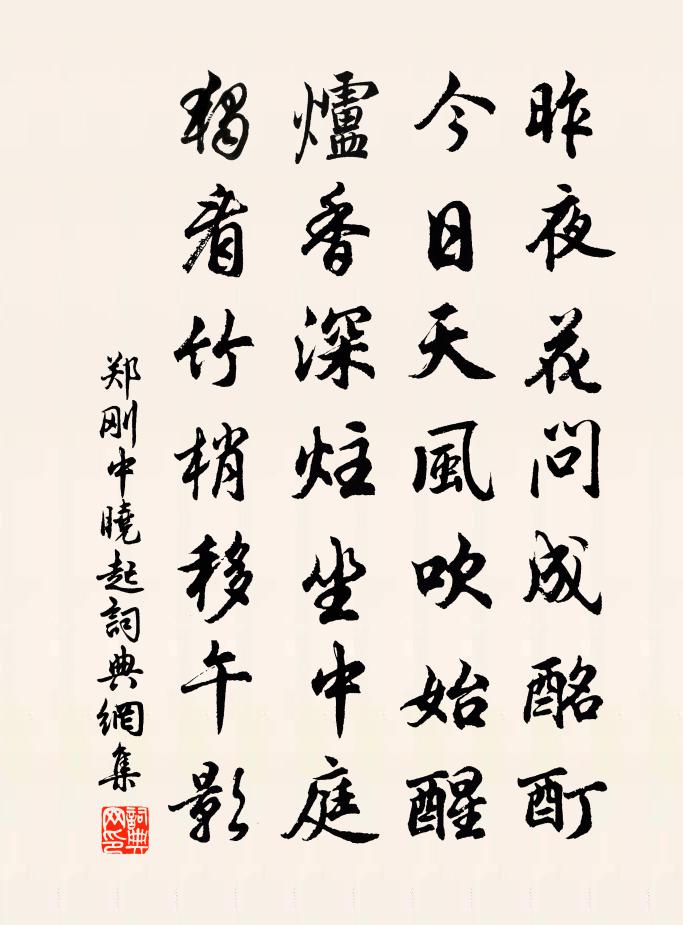 昨夜花問成酩酊
今日天風吹始醒
爐香深炷坐中庭
獨看竹梢移午影
郑刚中曉起詞典網集
詞典网印